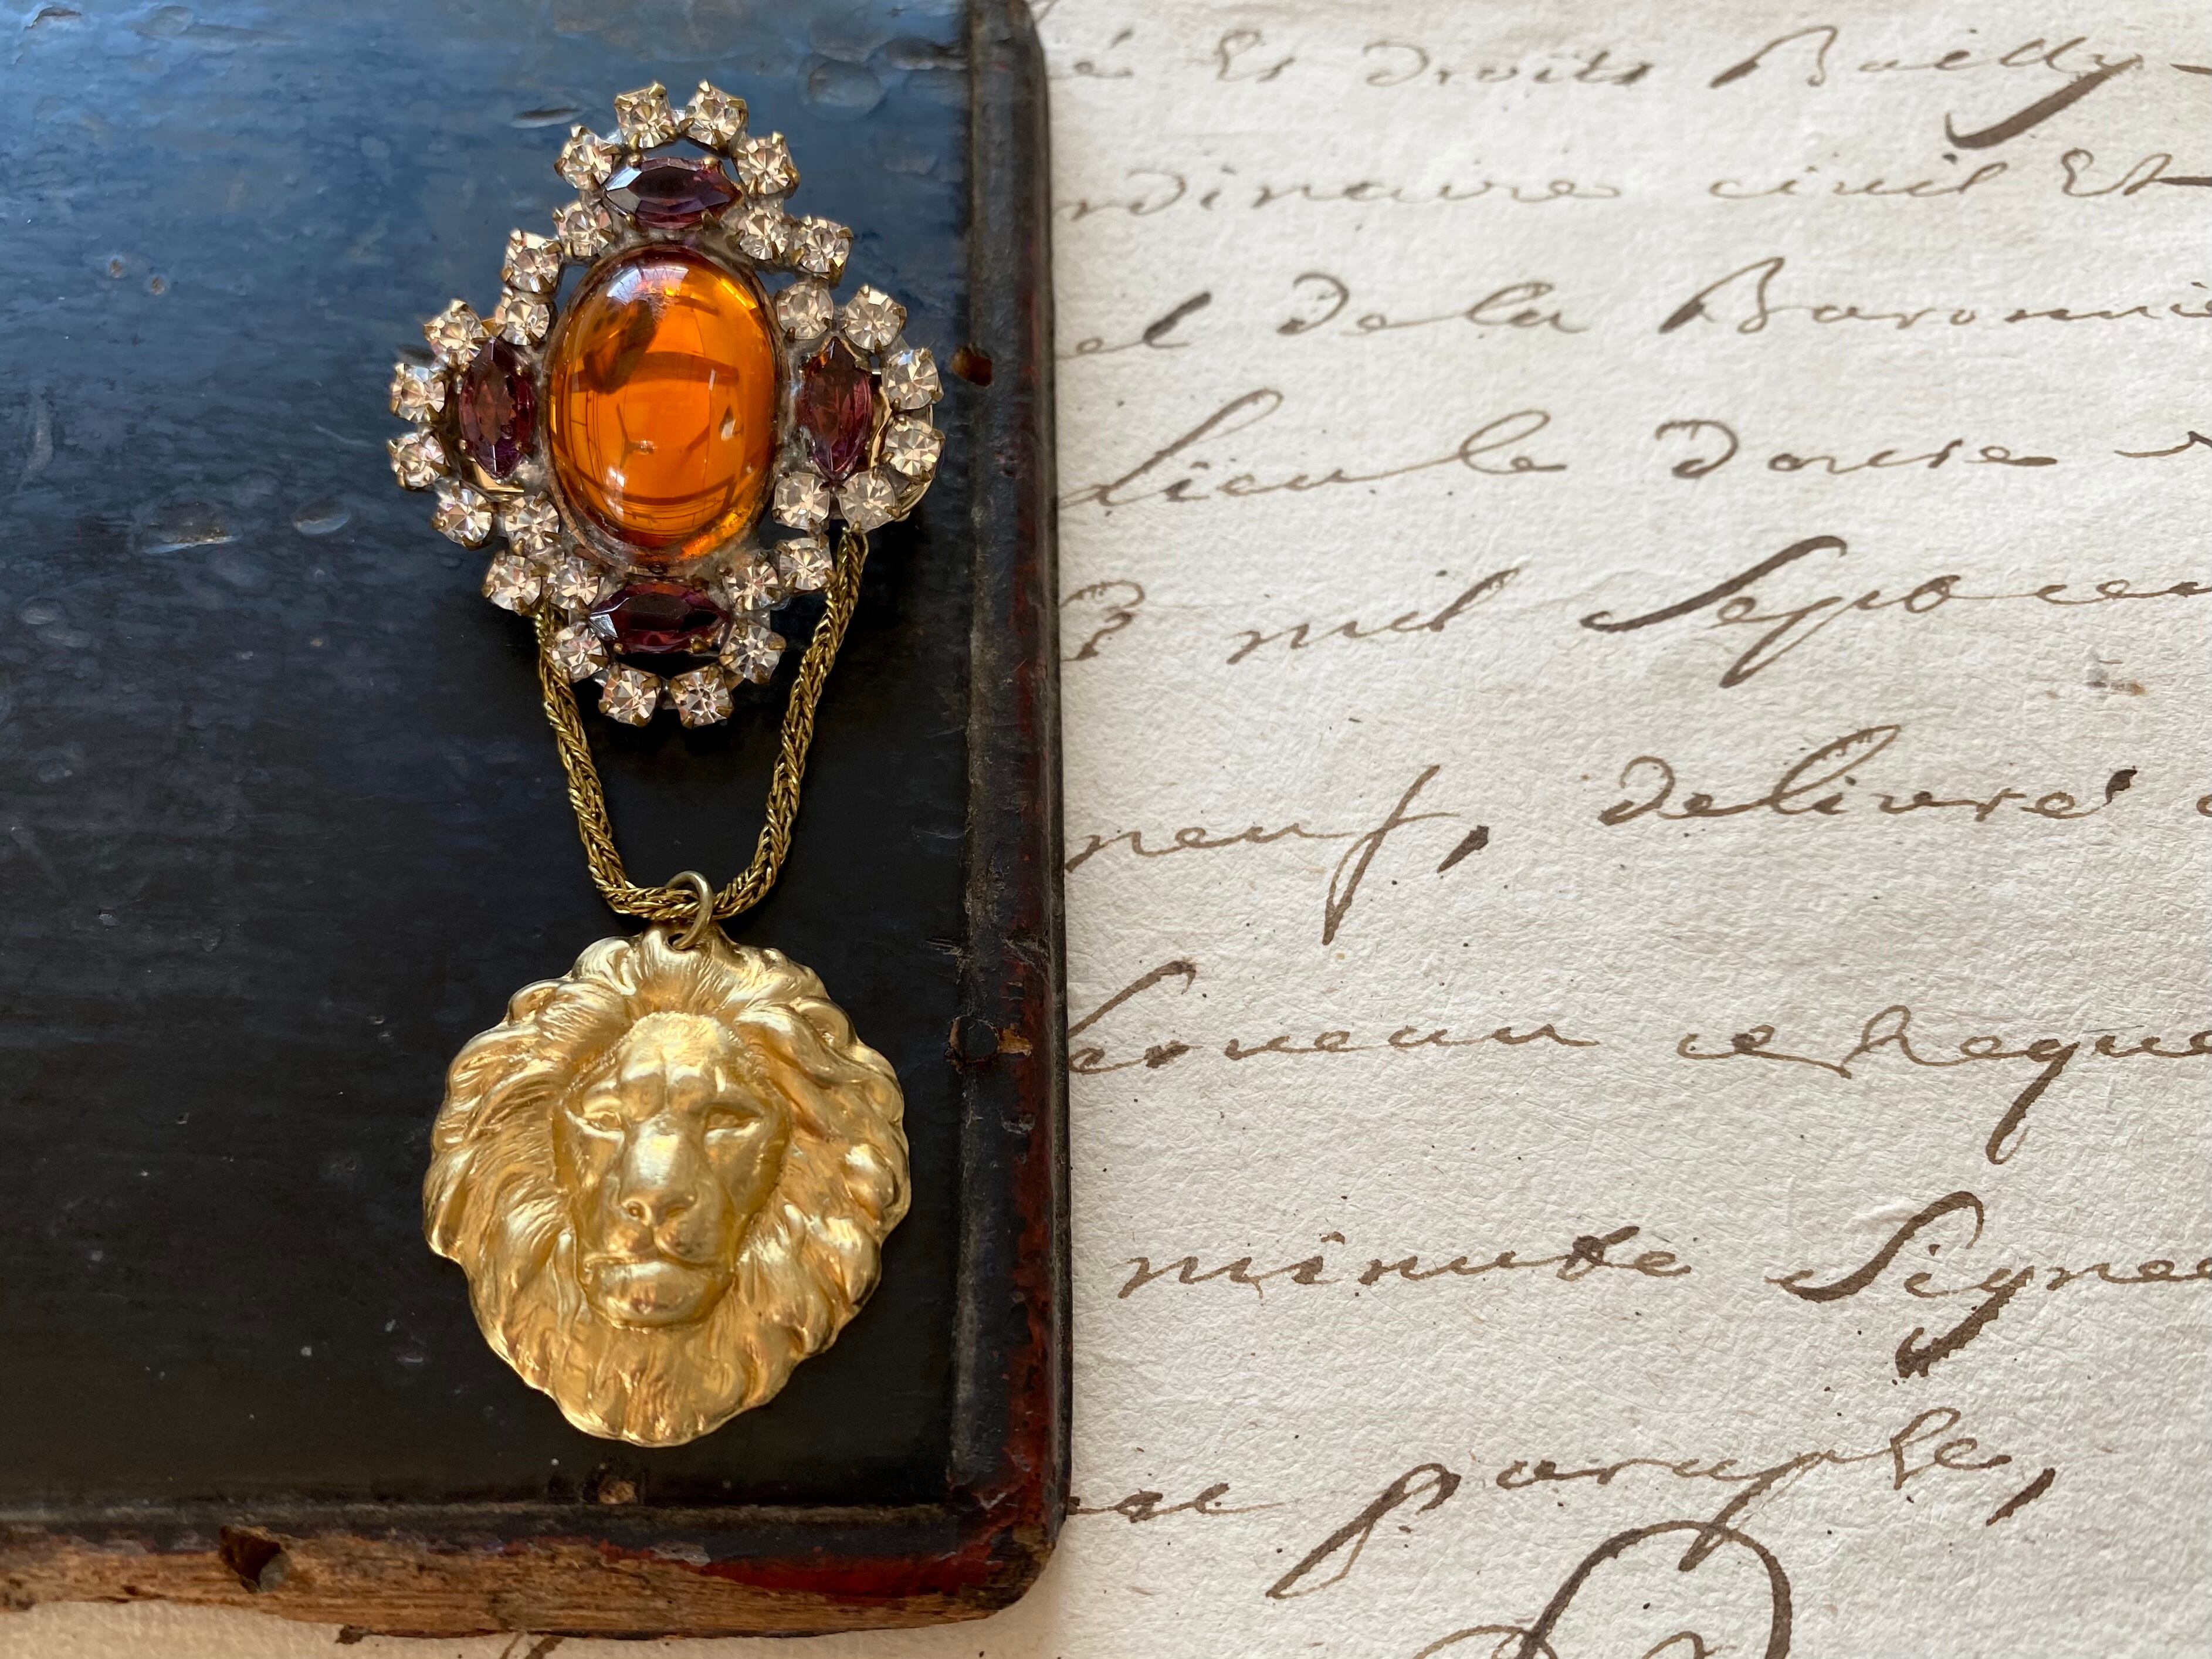 é Et droits Bailly
rdinaire civil Et
el de la Baronnie
lieu le douse
3 mil Sept cen
neuf, delivré
ce Reque
minute Signee
paraphe,